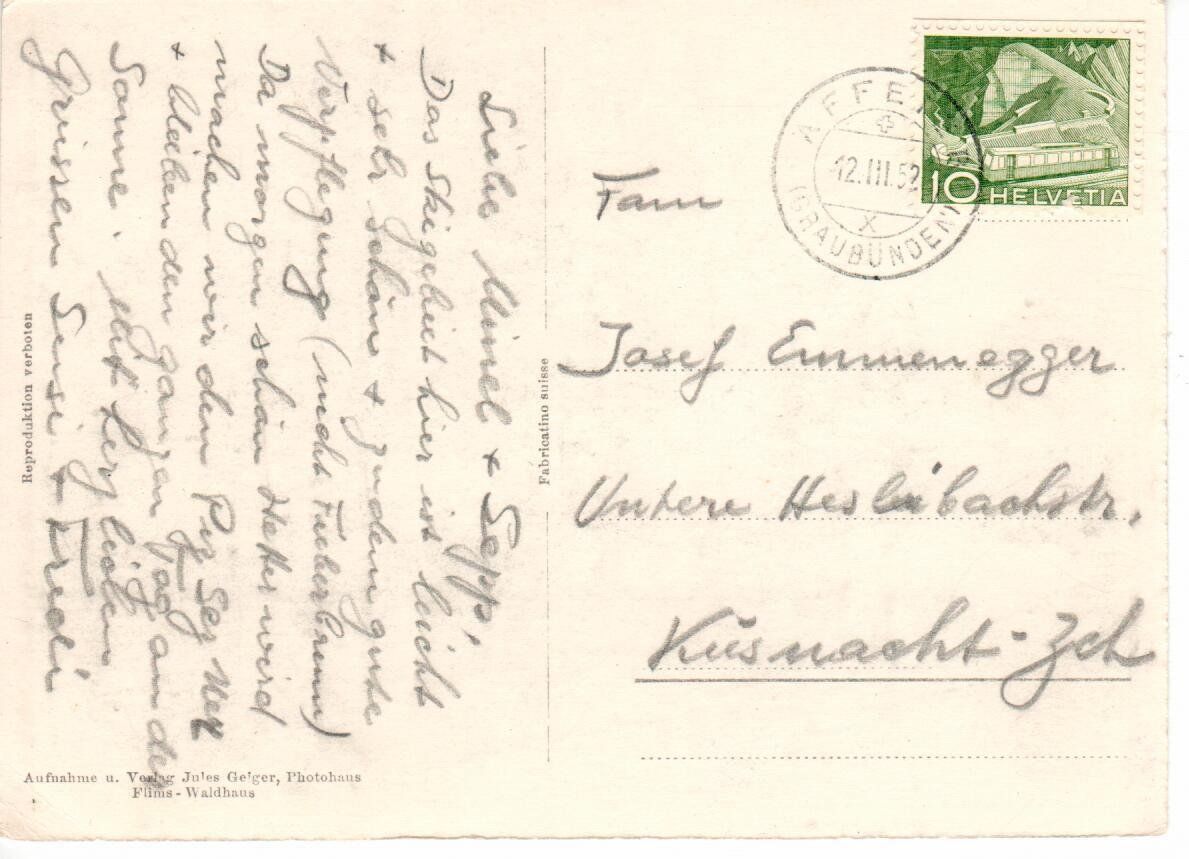 Liebe Mineli + Seppi
Das Skigebiet hier ist leicht
+ sehr schön + zudem gute
Verpflegung (nicht Fieberbrunn)
Da morgen schön Wetter wird
machen wir den Piz Seg Nez
+ bleiben den ganzen Tag an der
Sonne. Mit herzlichen
Grüssen Sensi + Fredi
Reproduktion verboten
Aufnahme u. Verlag Jules Geiger, Photohaus
Flims - Waldhaus
Fabricatino suisse
AFFE
(GRAUBÜNDEN)
12.III.52
X
10 HELVETIA
Fam
Josef Emmenegger
Untere Heslibachstr.
Küsnacht-Zch